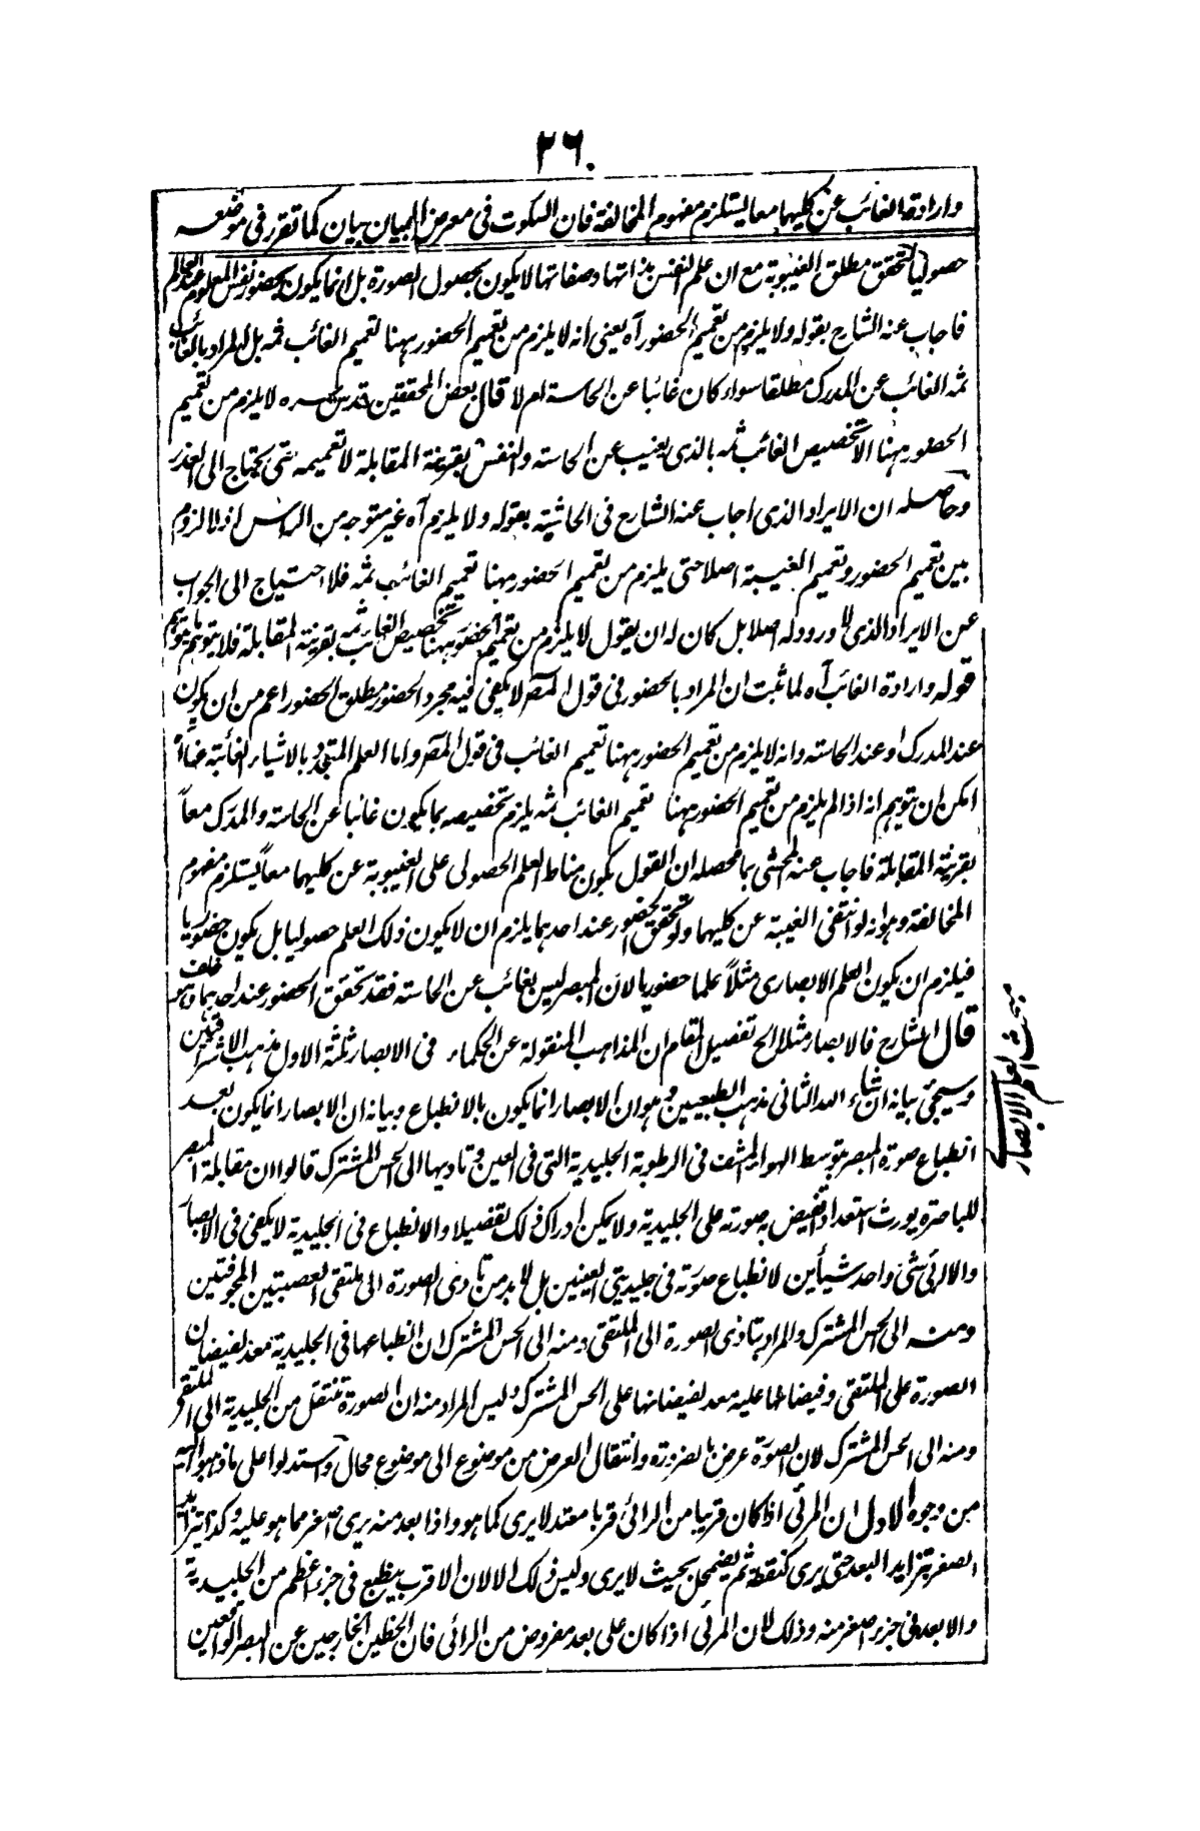 ٢٦٠
وارادة الغائب عن كليهما معا يستلزم مفهوم المخالفة فان السكوت فى معرض البيان بيان كما تقرر فى موضعه
حصوليا لتحقق مطلق الغيبوبة مع ان علم النفس بذاتها وصفاتها لا يكون بحصول الصورة بل انما يكون بحضور نفس المعلوم عند العالم
فاجاب عنه الشارح بقوله ولا يلزم من تعميم الحضور آه يعنى انه لا يلزم من تعميم الحضور ههنا تعميم الغائب ثمه بل المراد بالغائب
ثمه الغائب عن المدرك مطلقا سواء كان غائبا عن الحاسة ام لا قال بعض المحققين قدس سره لا يلزم من تعميم
الحضور ههنا الا تخصيص الغائب ثمه بالذى يغيب عن الحاسة والنفس بقرينة المقابلة لا تعميمه حتى يحتاج الى العذر
وحاصله ان الايراد الذى اجاب عنه الشارح فى الحاشية بقوله ولا يلزم آه غير متوجه من الراس اذ لا لزوم
بين تعميم الحضور وتعميم الغيبة اصلا حتى يلزم من تعميم الحضور ههنا تعميم الغائب ثمه فلا احتياج الى الجواب
عن الايراد الذى لا ورود له اصلا بل كان له ان يقول لا يلزم من تعميم الحضور ههنا تخصيص الغائب ثمه بقرينة المقابلة فلا يتوهم
قوله وارادة الغائب آه لما ثبت ان المراد بالحضور فى قول المصر لا يكفى فيه مجرد الحضور مطلق الحضور اعم من ان يكون
عند المدرك او عند الحاسة وانه لا يلزم من تعميم الحضور ههنا تعميم الغائب فى قول المصر واما العلم المتجدد بالاشياء الغائبة عنا آه
امكن ان يتوهم انه اذا لم يلزم من تعميم الحضور ههنا تعميم الغائب ثمه يلزم تخصيصه بما يكون غائبا عن الحاسة والمدرك معاً
بقرينة المقابلة فاجاب عنه المحشى بما محصله ان القول بكون مناط العلم الحصولى على الغيبوبة عن كليهما معاً يستلزم مفهوم
المخالفة وهو انه لو انتفى الغيبة عن كليهما ولو تحقق الحضور عند احدهما يلزم ان لا يكون ذلك العلم حصوليا بل يكون حضوريا
فيلزم ان يكون العلم الابصارى مثلاً علما حضوريا لان المبصر ليس بغائب عن الحاسة فقد تحقق الحضور عند احدهما وهو خلف
قال الشارح فالابصار مثلا الخ تفصيل المقام ان المذاهب المنقولة عن الحكماء فى الابصار ثلثة الاول مذهب الاشراقيين
وسيجئ بيانه ان شاء الله الثانى مذهب الطبيعيين وهو ان الابصار انما يكون بالانطباع وبيانه ان الابصار انما يكون بعد
انطباع صورة المبصر بتوسط الهواء المشف فى الرطوبة الجليدية التى فى العين وتاديها الى الحس المشترك قالوا ان مقابلة المبصر
للباصرة يورث استعدادا تفيض به صورته على الجليدية ولا يمكن ادراك ذلك تفصيلا والانطباع فى الجليدية لا يكفى فى الابصار
والا لرئى شئ واحد شيأين لانطباع صورته فى جليديتى العينين بل لا بد من تادى الصورة الى ملتقى العصبتين المجوفتين
ومنه الى الحس المشترك والمراد بتاذى الصورة الى الملتقى ومنه الى الحس المشترك ان انطباعها فى الجليدية معد لفيضان
الصورة على الملتقى وفيضانها عليه معد لفيضانها على الحس المشترك وليس المراد منه ان الصورة تنتقل من الجليدية الى الملتقى
ومنه الى الحس المشترك لان الصورة عرض بالضرورة وانتقال العرض من موضوع الى موضوع محال واستدلوا على ما ذهبوا اليه
من وجوه الاول ان المرئى اذا كان قريبا من الرائى قربا معتدلا يرى كما هو واذا بعد منه يرى اصغر مما هو عليه وكذا يتزايد
الصغر بتزايد البعد حتى يرى كنقطة ثم يضمحل بحيث لا يرى وليس ذلك الا لان الاقرب ينطبع فى جزء اعظم من الجليدية
والابعد فى جزء اصغر منه وذلك لان المرئى اذا كان على بعد مفروض من الرائى فان الخطين الخارجين عن البصر الواقعين